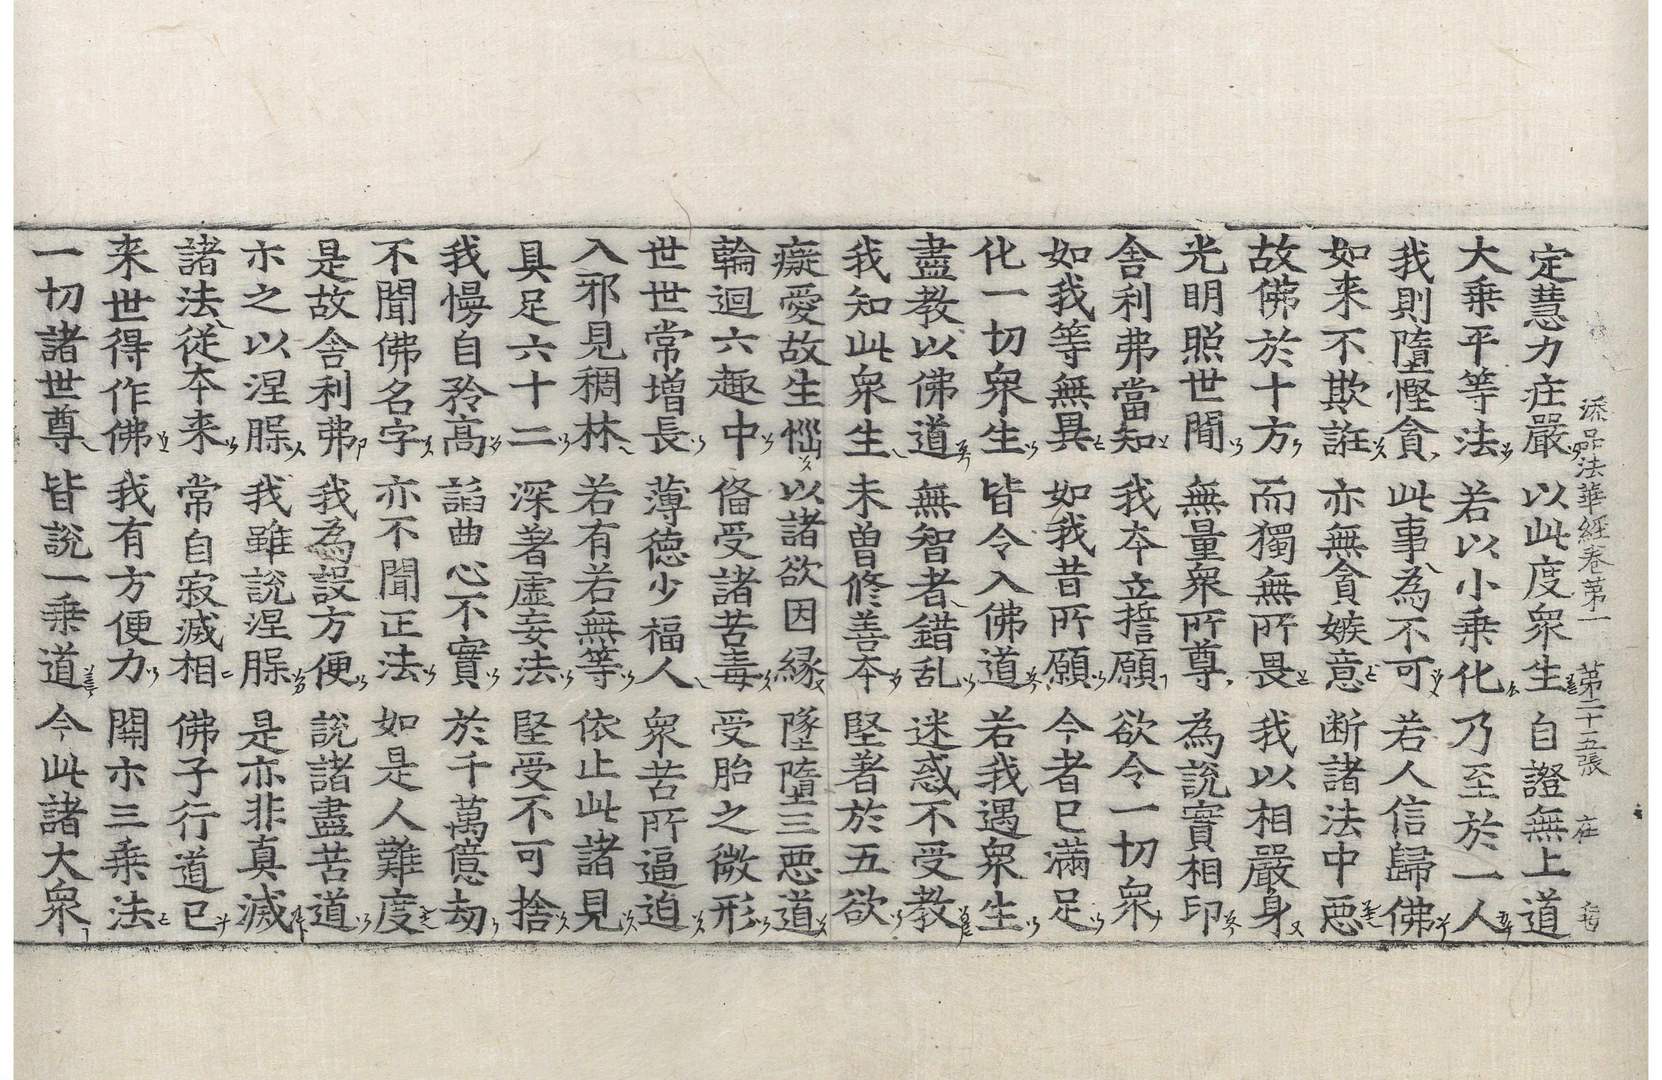 添品法華經卷第一 第二十五張
定慧力庄嚴 以此度衆生 自證無上道
大乗平等法 若以小乗化 乃至於一人
我則墮慳貪 此事為不可 若人信歸佛
如来不欺誑 亦無貪嫉意 断諸法中悪
故佛於十方 而獨無所畏 我以相嚴身
光明照世間 無量衆所尊 為說實相印
舎利弗當知 我夲立誓願 欲令一切衆
如我等無異 如我昔所願 今者已滿足
化一切衆生 皆令入佛道 若我遇衆生
盡教以佛道 無智者錯乱 迷惑不受教
我知此衆生 未曽修善夲 堅著於五欲
癡愛故生惱 以諸欲因縁 墜墮三悪道
輪迴六趣中 俻受諸苦毒 受胎之微形
世世常増長 薄徳少福人 衆苦所逼迫
入邪見稠林 若有若無等 依止此諸見
具足六十二 深著虚妄法 堅受不可捨
我慢自矜髙 諂曲心不實 於千萬億劫
不聞佛名字 亦不聞正法 如是人難度
是故舎利弗 我為設方便 説諸盡苦道
示之以涅槃 我雖説涅槃 是亦非真滅
諸法從夲来 常自寂滅相 佛子行道已
来世得作佛 我有方便力 開示三乗法
一切諸世尊 皆説一乗道 今此諸大衆